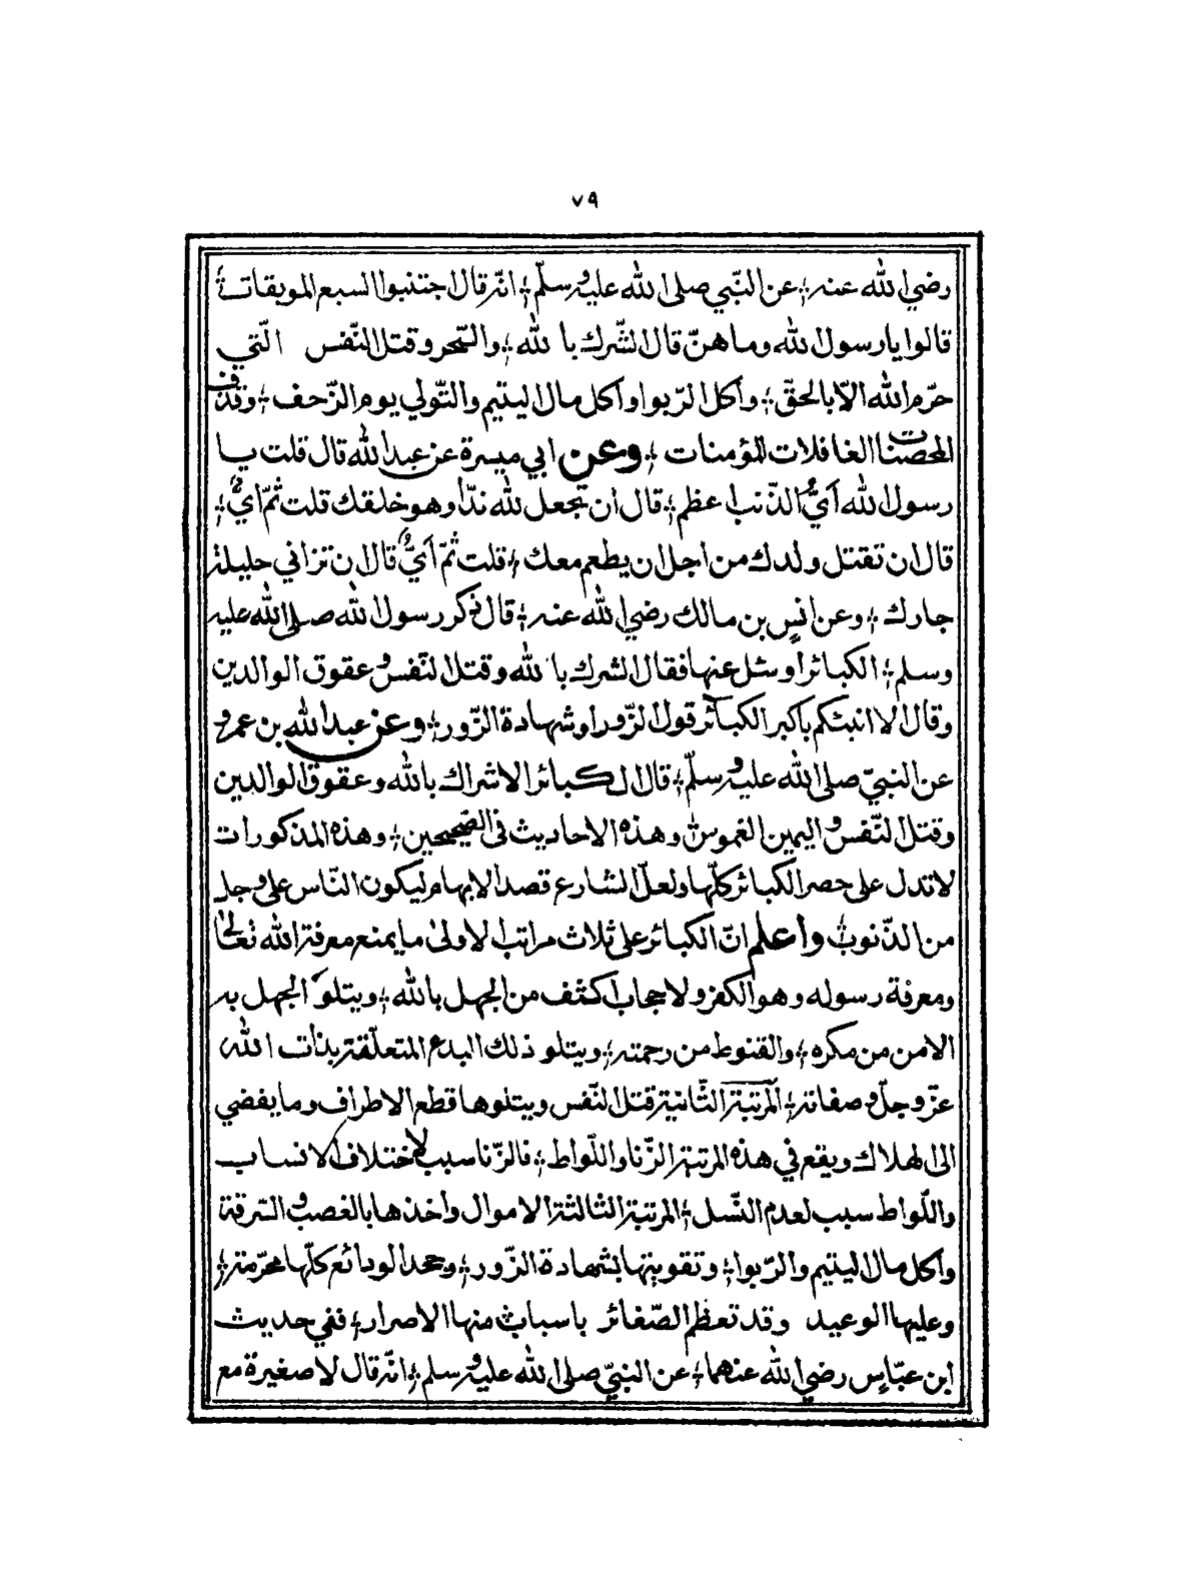 ٧٩
رضي الله عنه؛ عن النّبي صلى الله عليه وسلّم؛ انّه قال اجتنبوا السبع الموبقات؛
قالوا يا رسول الله وما هنّ قال الشّرك با لله؛ والسّحر وقتل النّفس الّتي
حرّم الله الاّ بالحقّ؛ واكل الرّبوا واكل مال اليتيم والتّولي يوم الزّحف؛ وقذف
المحصنات الغافلات المؤمنات؛ وعن ابي ميسرة عن عبد الله قال قلت يا
رسول الله أيُّ الذّنب اعظم؛ قال ان تجعل لله ندّا وهو خلقك قلت ثمّ ايٌّ؛
قال ان تقتل ولدك من اجل ان يطعم معك؛ قلت ثمّ أيٌّ قال ان تزاني حليلة
جارك؛ وعن انس بن مالك رضي الله عنه؛ قال ذكر رسول الله صلى الله عليه
وسلم؛ الكبائر او سئل عنها فقال الشرك با لله وقتل النّفس وعقوق الوالدين
وقال الا انبئكم باكبر الكبائر قول الزّور او شهادة الزّور؛ وعن عبد الله بن عمرو
عن النبيّ صلى الله عليه وسلّم؛ قال الكبائر الاشراك بالله وعقوق الوالدين
وقتل النّفس واليمين الغموس؛ وهذه الاحاديث في الصّحيحين؛ وهذه المذكورات
لا تدل على حصر الكبائر كلّها ولعلّ الشارع قصد الابهام ليكون النّاس على وجل
من الذّنوب؛ واعلم انّ الكبائر على ثلاث مراتب الاولى ما يمنع معرفة الله تعالى
ومعرفة رسوله وهو الكفر ولا حجاب اكثف من الجهل بالله؛ ويتلو الجهل به
الامن من مكره؛ والقنوط من رحمته؛ ويتلو ذلك البدع المتعلّقة بذات الله
عزّ وجلّ وصفاته؛ المرتبة الثّانية قتل النّفس ويتلوها قطع الاطراف وما يفضي
الى الهلاك ويقع في هذه المرتبة الزّنا واللّواط؛ فالزّنا سبب لاختلاف الانساب
واللّواط سبب لعدم النّسل؛ المرتبة الثالثة الاموال واخذها بالغصب والسّرقة
واكل مال اليتيم والرّبوا؛ وتفويتها بشهادة الزّور؛ وجحد الودائع كلّها محرّمة؛
وعليها الوعيد وقد تعظم الصّغائر باسباب منها الاصرار؛ ففي حديث
ابن عبّاس رضي الله عنهما؛ عن النبيّ صلى الله عليه وسلم؛ انّه قال لا صغيرة مع